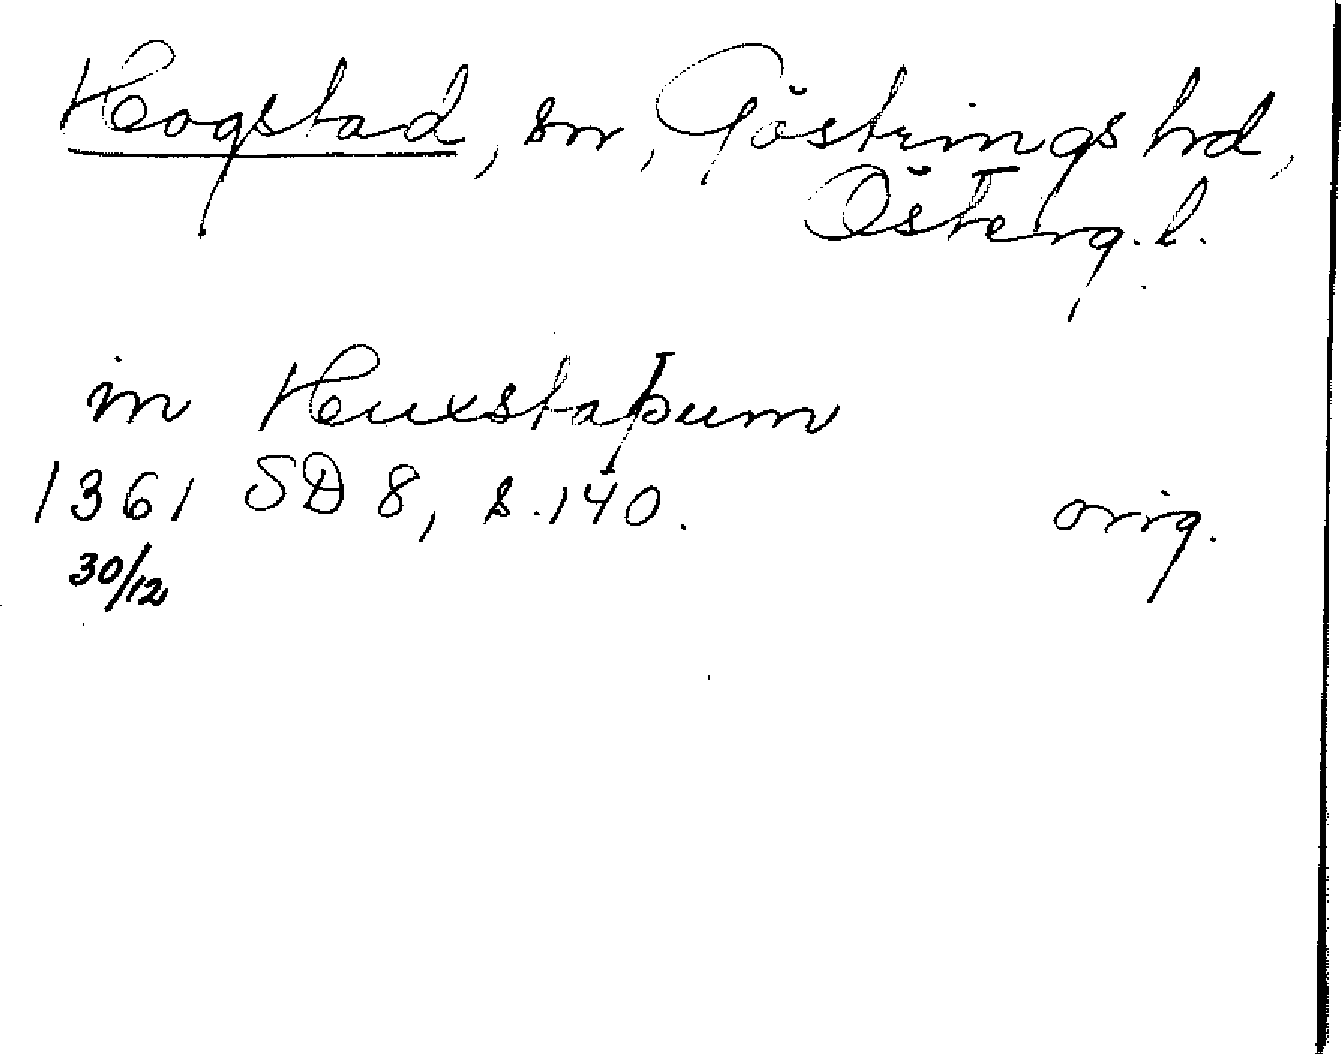 Hogstad, sn, Göstrings hd,
Österg. l.
in Huxstaþum
1361 SD 8, s. 140. orig.
30/12